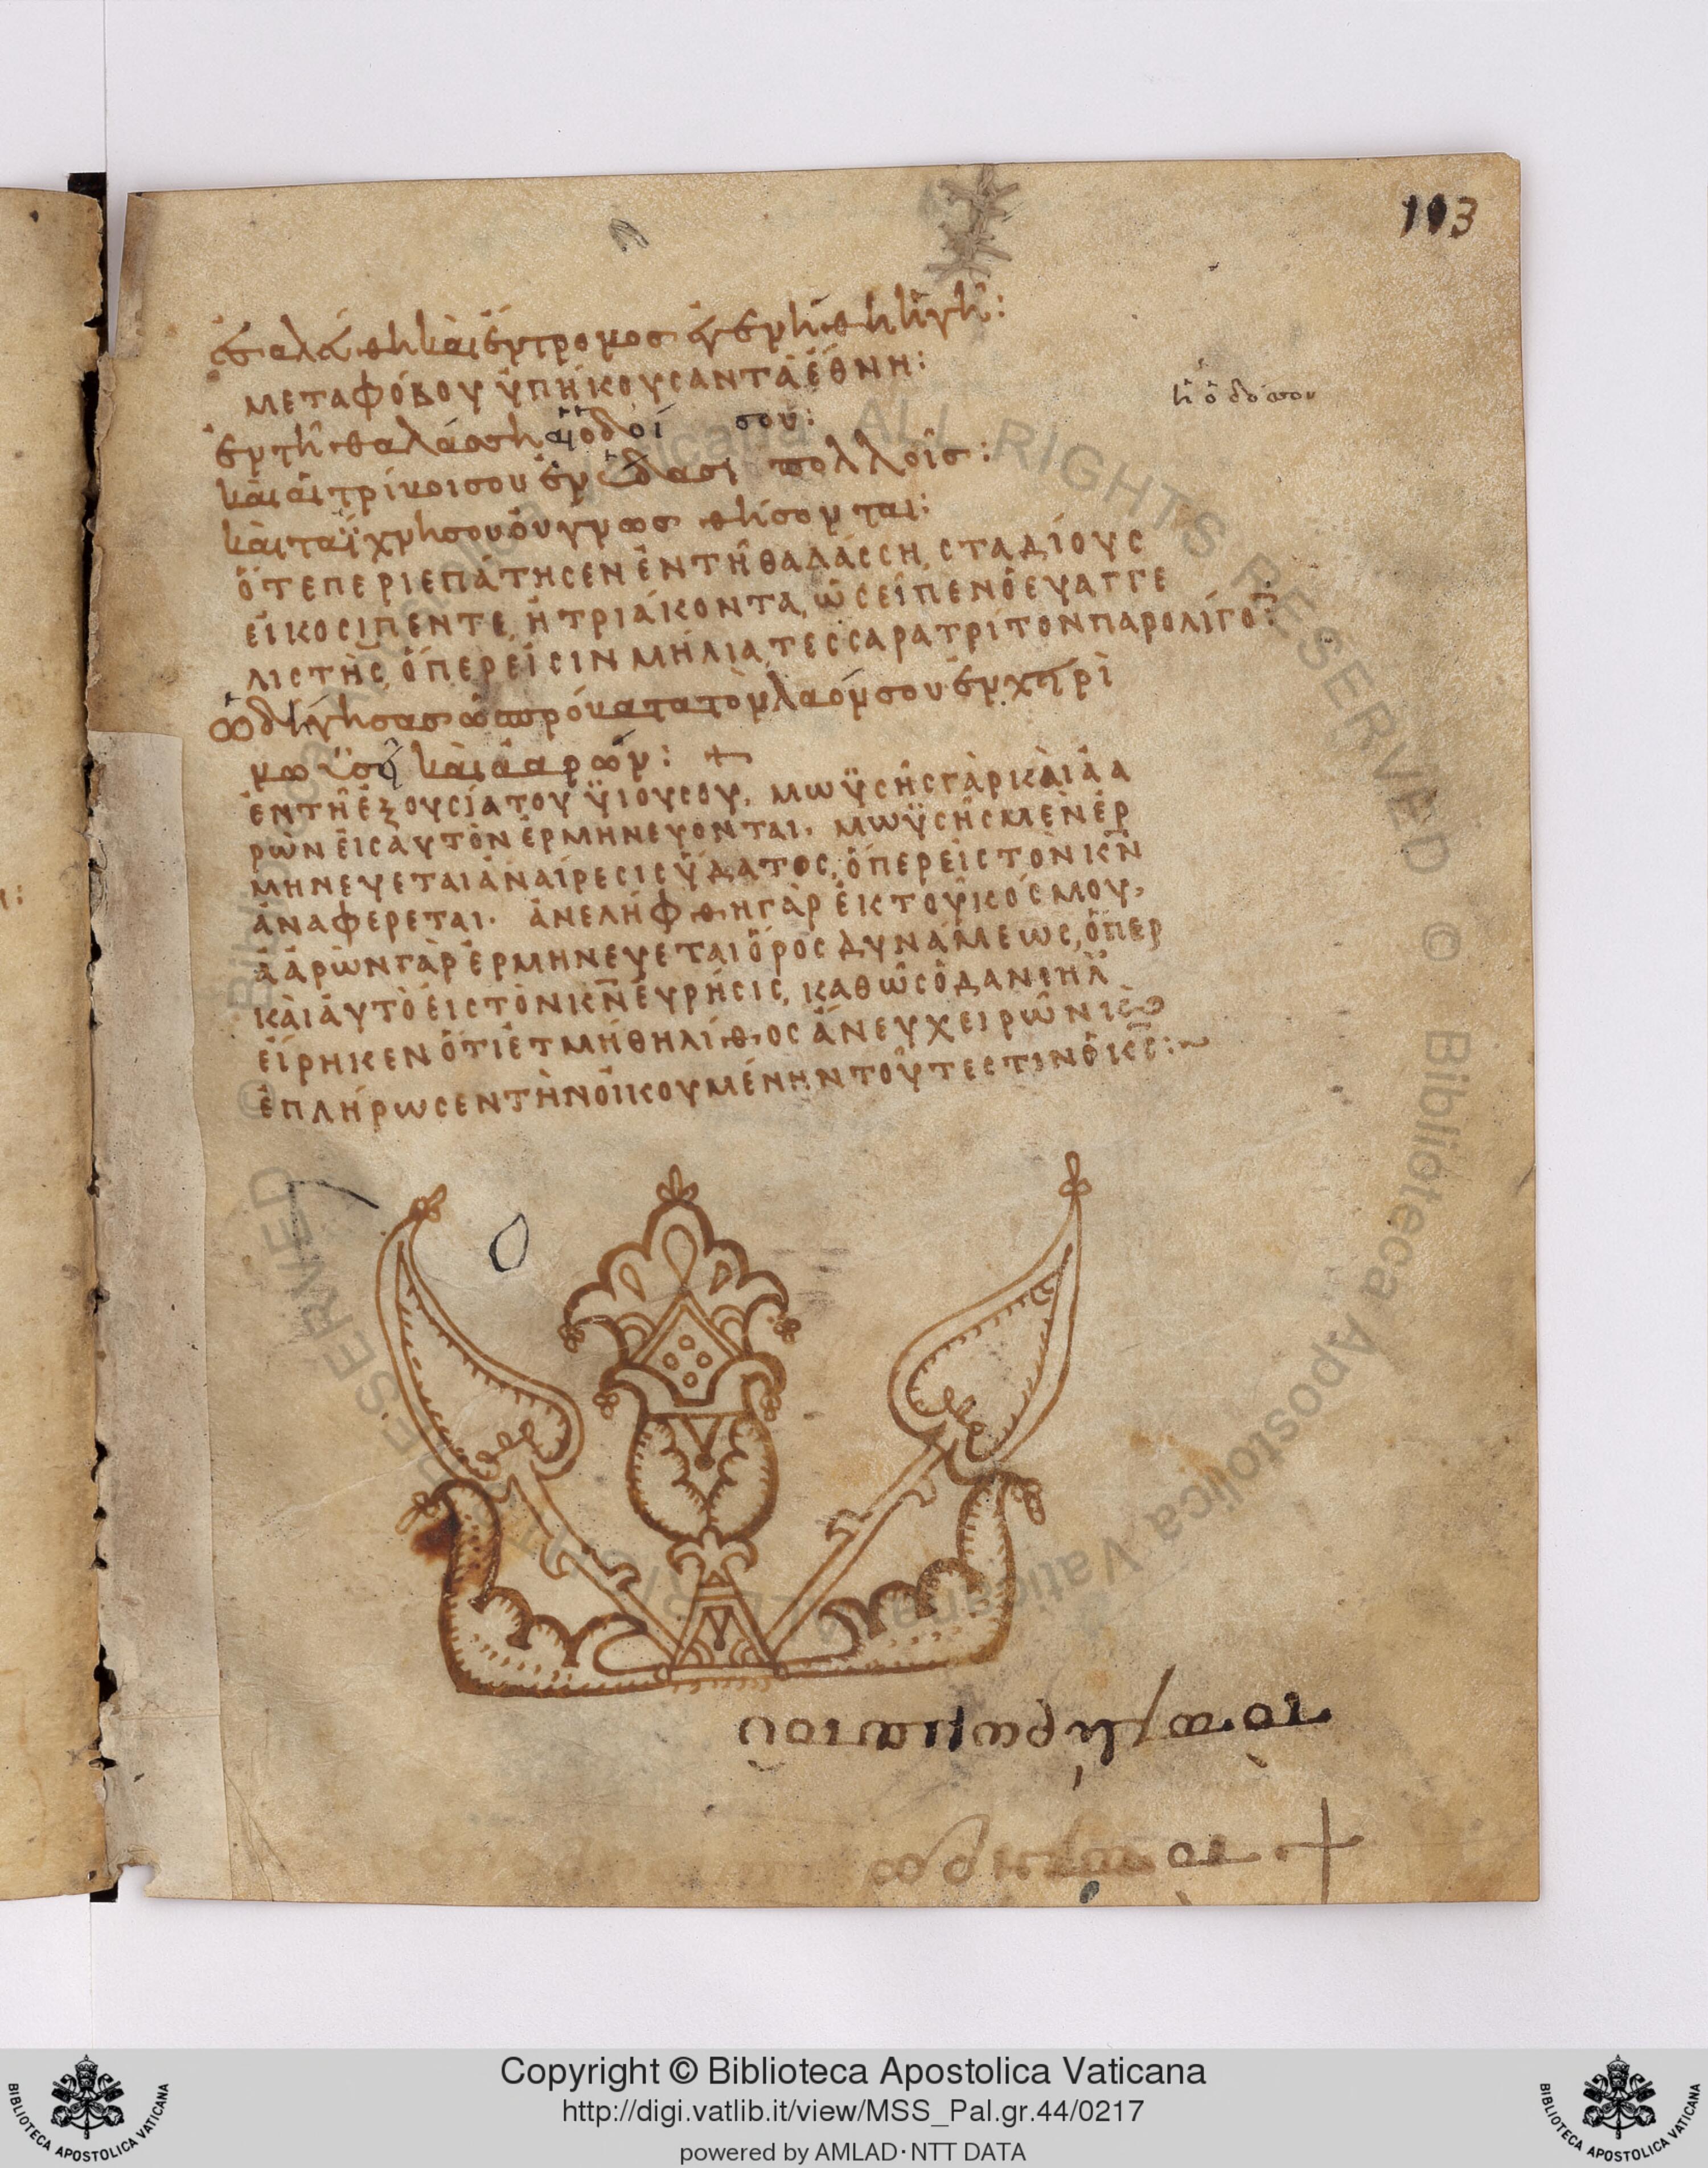 113
ἐσαλεύθη καὶ ἔντρομος ἐγενήθη ἡ γῆ:
ΜΕΤΑ ΦΌΒΟΥ ὙΠΉΚΟΥCΑΝ ΤΑ ἜΘΝΗ:
ἡ ὁδόσου
ἐν τῆ θαλάσση αἱ ὁδοί σου:
καὶ αἱ τρίβοι σου ἐν ὕδασι πολλοῖς:
καὶ τὰ ἴχνη σου οὐ γνωσθήσονται:
ὍΤΕ ΠΕΡΙΕΠΆΤΗCΕΝ ἘΝ ΤΗ͂ ΘΑΛΆCCΗ, CΤΑΔΊΟΥC
ΕἼΚΟCΙΠΕΝΤΕ, Ἢ ΤΡΙΆΚΟΝΤΑ, ὩC ΕἾΠΕΝ Ὁ ΕΥΑΓΓΕ
ΛΙCΤῊC, ὍΠΕΡ ΕἸCΙΝ ΜΉΛΙΑ ΤΕCCΑΡΑ ΤΡΊΤΟΝ ΠΑΡ ΟΛΊΓΟ:
ὡδήγησας ὡς πρόβατα τὸν λαόν σου ἐν χειρὶ
μωϋσῆ καὶ ἀαρών: +
ἘΝ ΤΗ͂ ἘΞΟΥCΊΑ ΤΟΥ ὙΙΟΥ CΟΥ. ΜΩΫCΗ͂C ΓᾺΡ ΚΑῚ ἈΑ
ΡῺΝ ΕἸC ΑΥΤῸΝ ἘΡΜΗΝΕΥΟΝΤΑΙ. ΜΩΫCΗ͂C ΜῈΝ ἙΡ
ΜΗΝΕΥΕΤΑΙ ἈΝΑΊΡΕCΙC ὝΔΑΤΟC, ὍΠΕΡ ΕἸC ΤῸΝ Κ̅Ν̅
ἈΝΑΦΕΡΕΤΑΙ. ἈΝΕΛΉΦΘΗ ΓᾺΡ ἘΚ ΤΟΥ͂ ΚΌCΜΟΥ,
ἈΑΡῺΝ ΓᾺΡ ἙΡΜΗΝΕΥΕΤΑΙ ὌΡΟC ΔΥΝΆΜΕΩC, ὍΠΕΡ
ΚΑῚ ἈΥΤῸ ΕἸC ΤῸΝ Κ̅Ν̅ ἙΥΡΉCΙC, ΚΑΘῺC Ὁ ΔΑΝΙΗΛ
ΕἼΡΗΚΕΝ ὍΤΙ ἘΤΜΉΘΗ ΛΊΘΟC ἌΝΕΥ ΧΕΙΡΩ͂Ν Κ̀
ἘΠΛΉΡΩCΕΝ ΤῊΝ ΟἸΚΟΥΜΈΝΗΝ ΤΟΥ͂ΤΕCΤΙΝ Ὁ Κ̅C̅:~
Copyright © Biblioteca Apostolica Vaticana
http://digi.vatlib.it/view/MSS_Pal.gr.44/0217
powered by AMLAD·NTT DATA
BIBLIOTECA APOSTOLICA VATICANA
BIBLIOTECA APOSTOLICA VATICANA